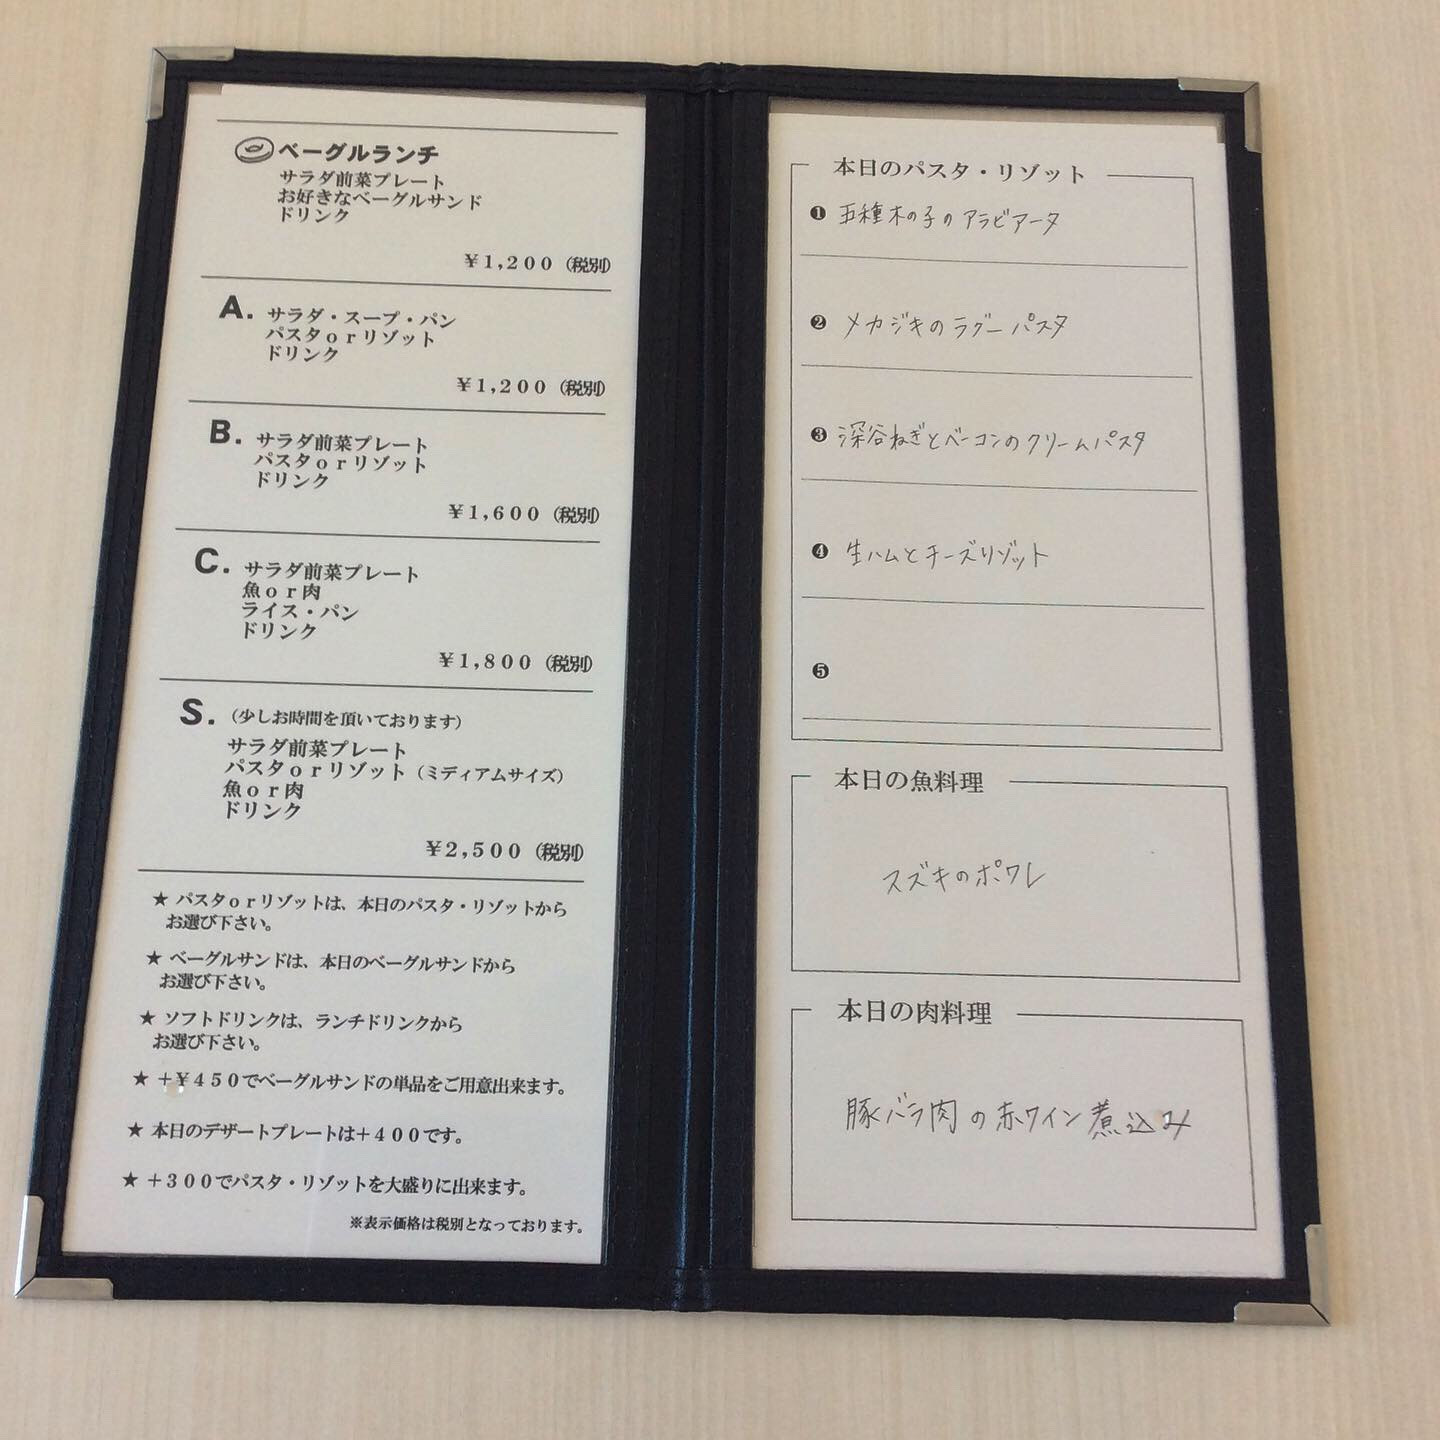 ベーグルランチ
サラダ前菜プレート
お好きなベーグルサンド
ドリンク
￥1,200（税別）
A.
サラダ・スープ・パン
パスタorリゾット
ドリンク
￥1,200（税別）
B.
サラダ前菜プレート
パスタorリゾット
ドリンク
￥1,600（税別）
C.
サラダ前菜プレート
魚or肉
ライス・パン
ドリンク
￥1,800（税別）
S.（少しお時間を頂いております）
サラダ前菜プレート
パスタorリゾット（ミディアムサイズ）
魚or肉
ドリンク
￥2,500（税別）
★ パスタorリゾットは、本日のパスタ・リゾットから
お選び下さい。
★ ベーグルサンドは、本日のベーグルサンドから
お選び下さい。
★ ソフトドリンクは、ランチドリンクから
お選び下さい。
★ +￥450でベーグルサンドの単品をご用意出来ます。
★ 本日のデザートプレートは+400です。
★ +300でパスタ・リゾットを大盛りに出来ます。
※表示価格は税別となっております。
本日のパスタ・リゾット
❶ 五種木の子のアラビアータ
❷ メカジキのラグーパスタ
❸ 深谷ねぎとベーコンのクリームパスタ
❹ 生ハムとチーズリゾット
❺
本日の魚料理
スズキのポワレ
本日の肉料理
豚バラ肉の赤ワイン煮込み